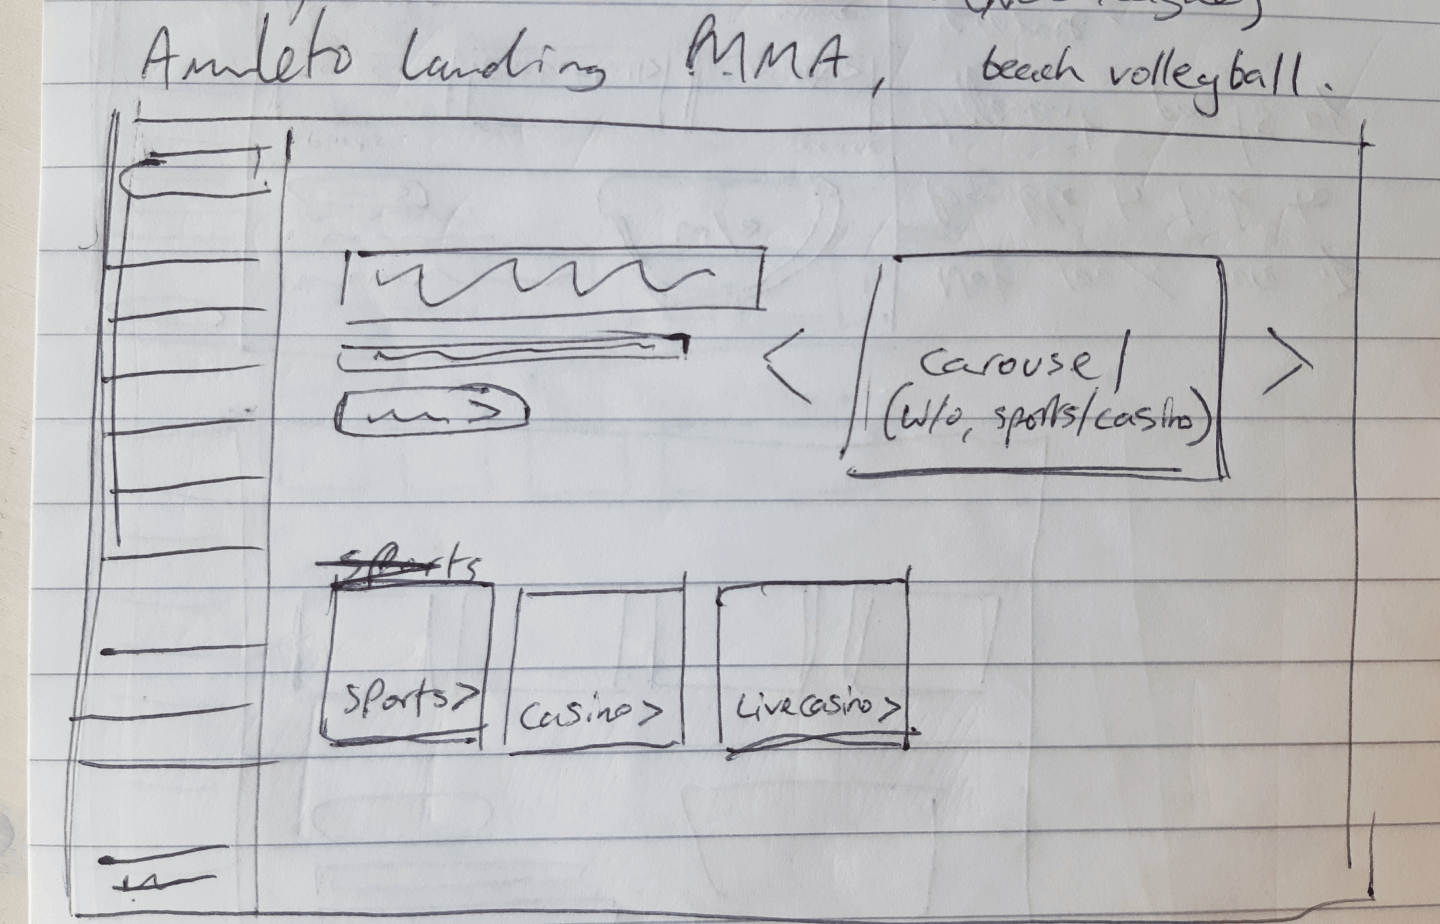 Amuleto landing MMA, beach volleyball.
carousel
(w/o, sports/casino)
sports
sports>
casino>
Livecasino>